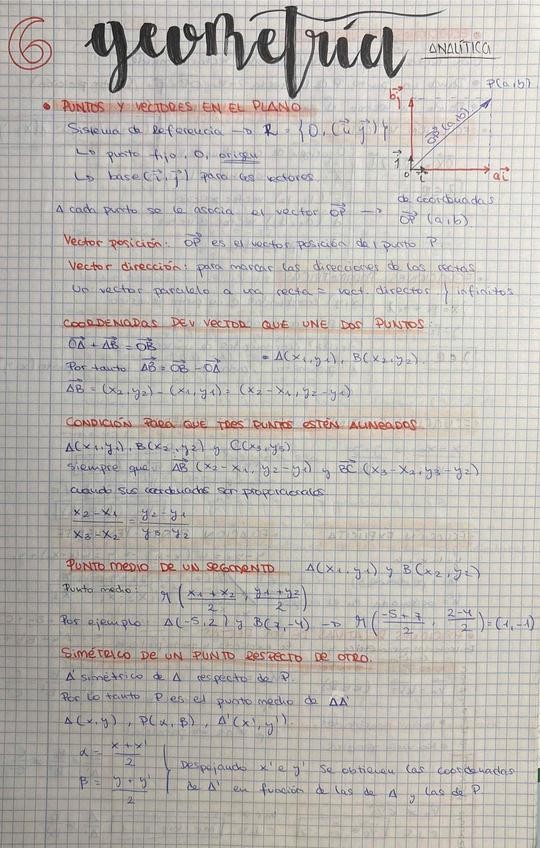 6 geometría ANALÍTICA
• PUNTOS Y VECTORES EN EL PLANO
Sistema de Referencia → R = {O, (u⃗ j⃗)}
↳ punto fijo, O, origen
↳ base (i⃗, j⃗) para los vectores.
P(a,b)
bj⃗
OP⃗ (a,b)
j⃗
O i⃗ ai⃗
A cada punto se le asocia el vector OP⃗ → de coordenadas OP⃗ (a,b).
Vector posición: OP⃗ es el vector posición del punto P.
Vector dirección: para marcar las direcciones de las rectas
Un vector paralelo a una recta = vect. director } infinitos.
COORDENADAS DEL VECTOR QUE UNE DOS PUNTOS:
OA⃗ + AB⃗ = OB⃗
Por tanto AB⃗ = OB⃗ - OA⃗ = A(x1,y1), B(x2,y2).
AB⃗ = (x2,y2) - (x1,y1) = (x2-x1, y2-y1)
CONDICIÓN PARA QUE TRES PUNTOS ESTÉN ALINEADOS
A(x1,y1), B(x2,y2) y C(x3,y3)
siempre que AB⃗ (x2-x1, y2-y1) y BC⃗ (x3-x2, y3-y2)
cuando sus coordenadas son proporcionales.
x2-x1/x3-x2 = y2-y1/y3-y2
PUNTO MEDIO DE UN SEGMENTO A(x1,y1) y B(x2,y2)
Punto medio: M(x1+x2/2, y1+y2/2)
Por ejemplo A(-5,2) y B(7,-4) → M(-5+7/2, 2-4/2) = (1,-1)
SIMÉTRICO DE UN PUNTO RESPECTO DE OTRO.
A' simétrico de A respecto de P.
Por lo tanto P es el punto medio de AA'
A(x,y), P(α,β), A'(x',y').
α = x+x'/2
β = y+y'/2
Despejando x' e y' se obtienen las coordenadas
de A' en función de las de A y las de P